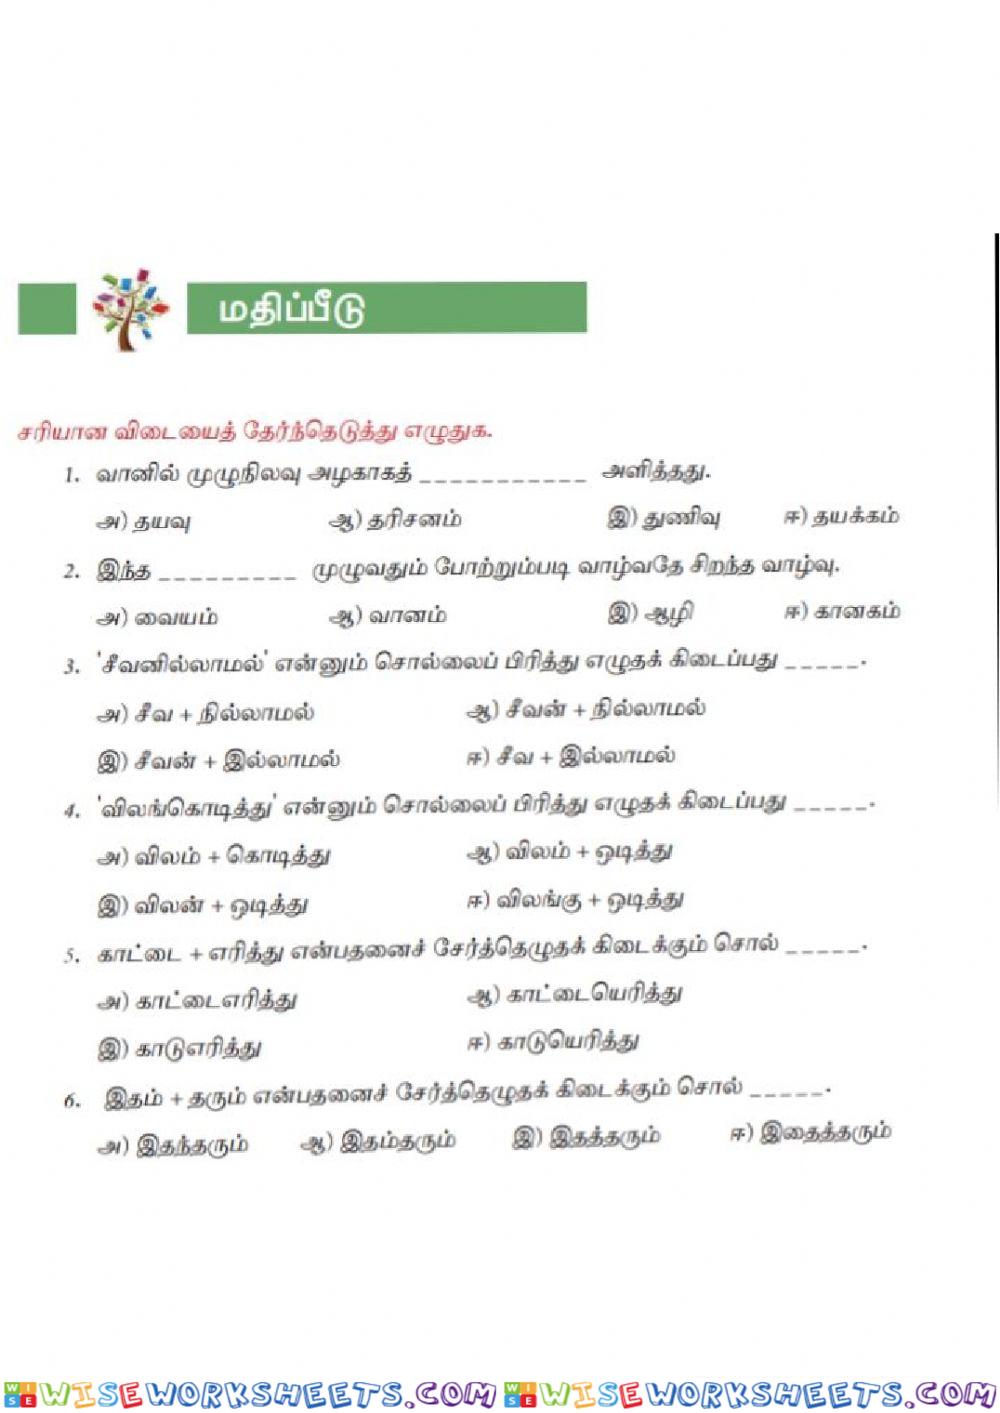 மதிப்பீடு
சரியான விடையைத் தேர்ந்தெடுத்து எழுதுக.
1. வானில் முழுநிலவு அழகாகத் ___________ அளித்தது.
அ) தயவு ஆ) தரிசனம் இ) துணிவு ஈ) தயக்கம்
2. இந்த _________ முழுவதும் போற்றும்படி வாழ்வதே சிறந்த வாழ்வு.
அ) வையம் ஆ) வானம் இ) ஆழி ஈ) கானகம்
3. 'சீவனில்லாமல்' என்னும் சொல்லைப் பிரித்து எழுதக் கிடைப்பது _____.
அ) சீவ + நில்லாமல் ஆ) சீவன் + நில்லாமல்
இ) சீவன் + இல்லாமல் ஈ) சீவ + இல்லாமல்
4. 'விலங்கொடித்து' என்னும் சொல்லைப் பிரித்து எழுதக் கிடைப்பது _____.
அ) விலம் + கொடித்து ஆ) விலம் + ஒடித்து
இ) விலன் + ஒடித்து ஈ) விலங்கு + ஒடித்து
5. காட்டை + எரித்து என்பதனைச் சேர்த்தெழுதக் கிடைக்கும் சொல் _____.
அ) காட்டைஎரித்து ஆ) காட்டையெரித்து
இ) காடுஎரித்து ஈ) காடுயெரித்து
6. இதம் + தரும் என்பதனைச் சேர்த்தெழுதக் கிடைக்கும் சொல் _____.
அ) இதந்தரும் ஆ) இதம்தரும் இ) இதத்தரும் ஈ) இதைத்தரும்
WISE WISEWORKSHEETS.COM WISE WISEWORKSHEETS.COM